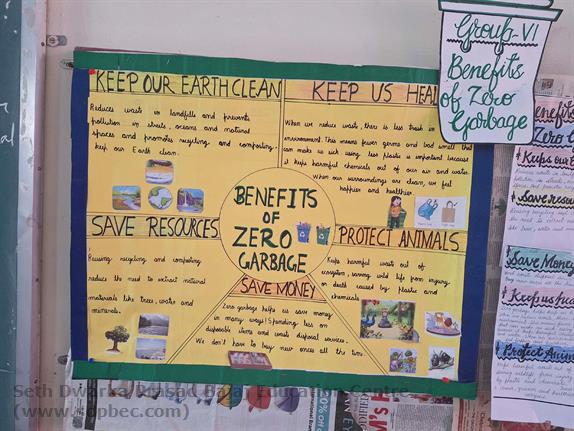 Group-VI
Benefits
of Zero
Garbage
KEEP OUR EARTH CLEAN
Reduces waste in landfills and prevents
pollution in streets, oceans and natural
spaces and promotes recycling and composting.
keep our Earth clean.
KEEP US HEAL
When we reduce waste, there is less trash in
environment. This means fewer germs and bad smell that
can make us sick using less plastic is important because
it keeps harmful chemicals out of our air and water.
When our surroundings are clean, we feel
happier and healthier.
BENEFITS
OF
ZERO
GARBAGE
SAVE RESOURCES
Reusing recycling and composting
reduce the need to extract natural
materials like trees, water and
minerals.
PROTECT ANIMALS
Keeps harmful waste out of
ecosystem, saving wild life from injury
or death caused by plastic and
chemicals
SAVE MONEY
Zero garbage helps us save money
in many ways! Spending less on
disposable items and waste disposal services.
We don't have to buy new onces all the time.
Benefits
Zero G
Keep our E
Save resour
Save money
Keep us hea
Protect Anim
20% OFF
Seth Dwarka Prasad Bajaj Education Centre
(www.sdpbec.com)